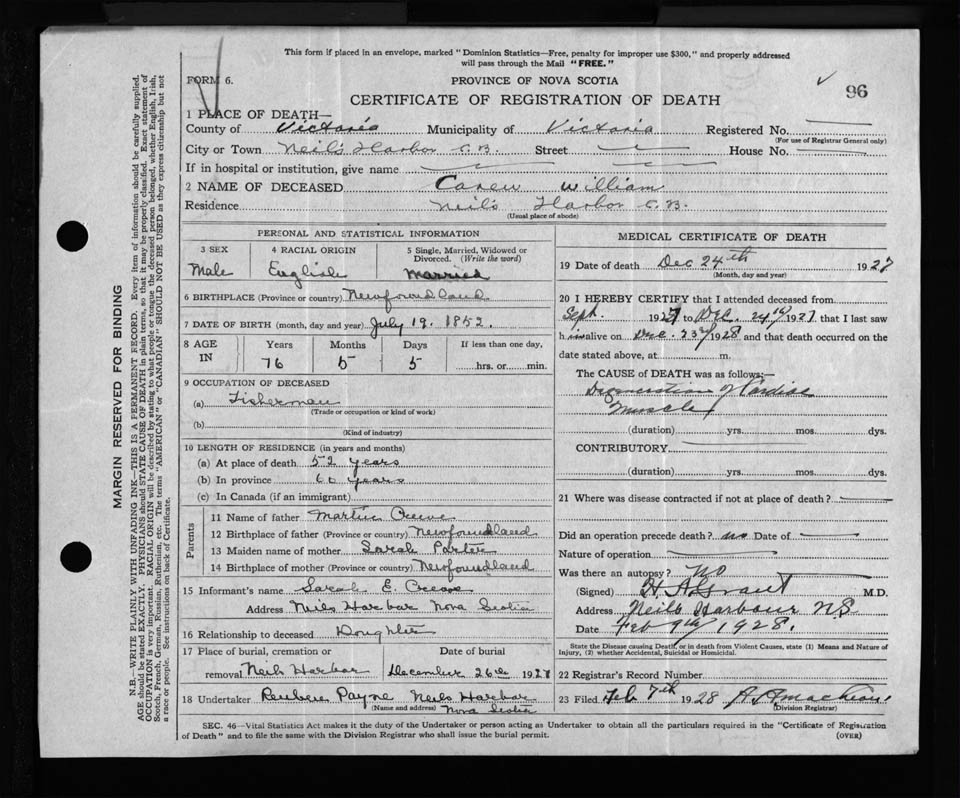 This form if placed in an envelope, marked "Dominion Statistics—Free, penalty for improper use $300," and properly addressed
will pass through the Mail "FREE."
FORM 6.
PROVINCE OF NOVA SCOTIA
96
CERTIFICATE OF REGISTRATION OF DEATH
1 PLACE OF DEATH—
County of Victoria Municipality of Victoria Registered No.
(For use of Registrar General only)
City or Town Neil's Harbor C.B. Street House No.
If in hospital or institution, give name
2 NAME OF DECEASED William
Residence Neil's Harbor C.B.
(Usual place of abode)
PERSONAL AND STATISTICAL INFORMATION
3 SEX 4 RACIAL ORIGIN 5 Single, Married, Widowed or Divorced. (Write the word)
Male English Married
6 BIRTHPLACE (Province or country) Newfoundland
7 DATE OF BIRTH (month, day and year) July 19. 1852.
8 AGE IN Years Months Days If less than one day,
76 5 5 hrs. or min.
9 OCCUPATION OF DECEASED
(a) Fisherman
(Trade or occupation or kind of work)
(b)
(Kind of industry)
10 LENGTH OF RESIDENCE (in years and months)
(a) At place of death 52 years
(b) In province 60 years
(c) In Canada (if an immigrant)
Parents
11 Name of father Martin
12 Birthplace of father (Province or country) Newfoundland
13 Maiden name of mother Sarah
14 Birthplace of mother (Province or country) Newfoundland
15 Informant's name Sarah E.
Address Neils Harbor Nova Scotia
16 Relationship to deceased Doughter
17 Place of burial, cremation or Date of burial
removal Neils Harbor December 26th 1927
18 Undertaker Reuben Payne Neils Harbor
(Name and address) Nova Scotia
MEDICAL CERTIFICATE OF DEATH
19 Date of death Dec 24th 1927
(Month, day and year)
20 I HEREBY CERTIFY that I attended deceased from
Sept. 1927 to Dec. 24th 1927 that I last saw
h im alive on Dec. 23rd 1928 and that death occurred on the
date stated above, at m.
The CAUSE of DEATH was as follows:—
Degeneration of Cardiac
Muscle
(duration) yrs. mos. dys.
CONTRIBUTORY
(duration) yrs. mos. dys.
21 Where was disease contracted if not at place of death?
Did an operation precede death? no Date of
Nature of operation
Was there an autopsy? NO
(Signed) M.D.
Address Neils Harbour N.S
Date Feb 9th 1928.
State the Disease causing Death, or in death from Violent causes, state (1) Means and Nature of
Injury, (2) whether Accidental, Suicidal or Homicidal.
22 Registrar's Record Number
23 Filed Feb 7th 1928
(Division Registrar)
SEC. 46—Vital Statistics Act makes it the duty of the Undertaker or person acting as Undertaker to obtain all the particulars required in the "Certificate of Registration
of Death" and to file the same with the Division Registrar who shall issue the burial permit. (OVER)
MARGIN RESERVED FOR BINDING
N.B.—WRITE PLAINLY WITH UNFADING INK—THIS IS A PERMANENT RECORD. Every item of information should be carefully supplied.
AGE should be stated EXACTLY. PHYSICIANS should STATE CAUSE OF DEATH in plain terms, so that it may be properly classified. Exact statement of
OCCUPATION is very important. RACIAL ORIGIN will be described by stating to what people or tongue the deceased person belonged, whether English, Irish,
Scotch, French, German, Russian, Ruthenian, etc. The terms "AMERICAN" or "CANADIAN" SHOULD NOT BE USED as they express citizenship but not
a race or people. See instructions on back of Certificate.